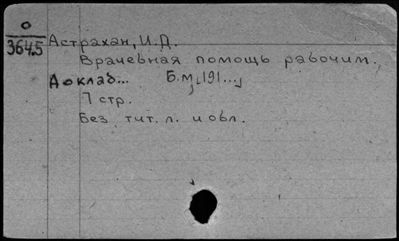 0
3645 Астрахан, И.Д.
Врачебная помощь рабочим.
Доклад... Б.м., [191...,]
7 стр.
Без тит. л. и обл.